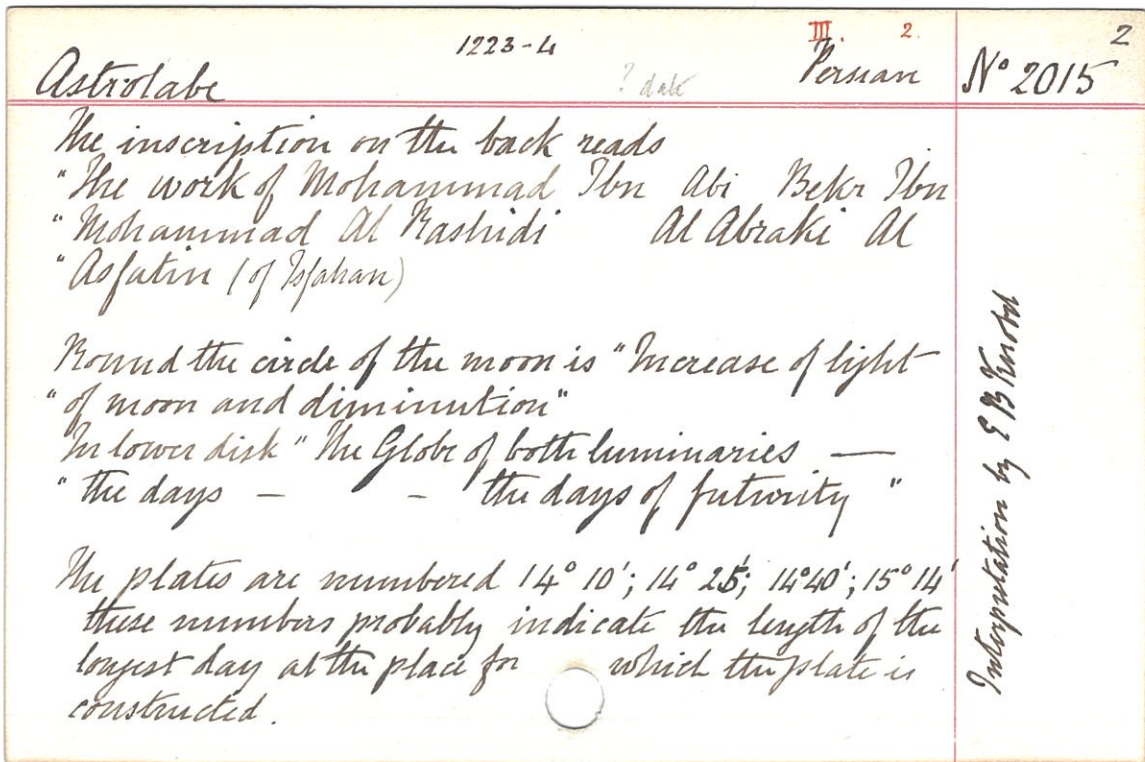 III. 2. 2
1223-4
Astrolabe ? date Persian No 2015
The inscription on the back reads
"The work of Mohammad Ibn Abi Bekr Ibn
"Mohammad Al Rashidi Al Abraki Al
"Asfatin (of Isfahan)
Round the circle of the moon is "Increase of light
"of moon and diminution"
In lower disk "The Globe of both luminaries —
"the days - - the days of futurity"
The plates are numbered 14° 10'; 14° 25'; 14° 40'; 15° 14'
these numbers probably indicate the length of the
longest day at the place for which the plate is
constructed.
Interpretation by E B Knobel